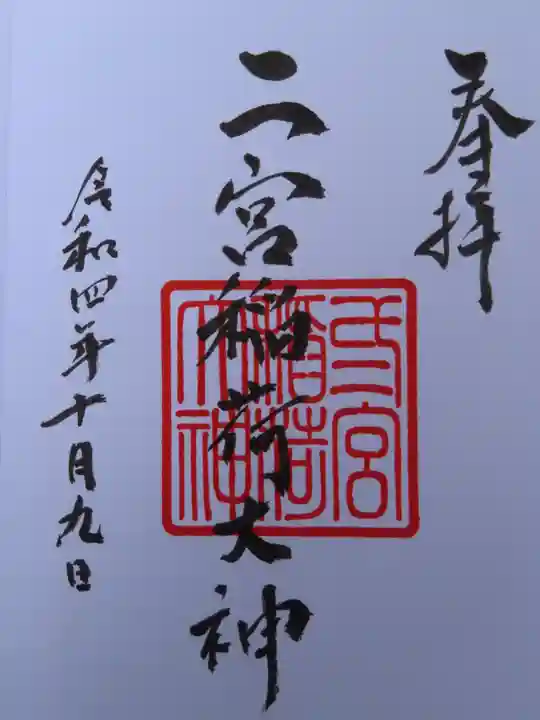 奉拝
二宮稲荷大神
二宮
稲荷
大神
令和四年十月九日